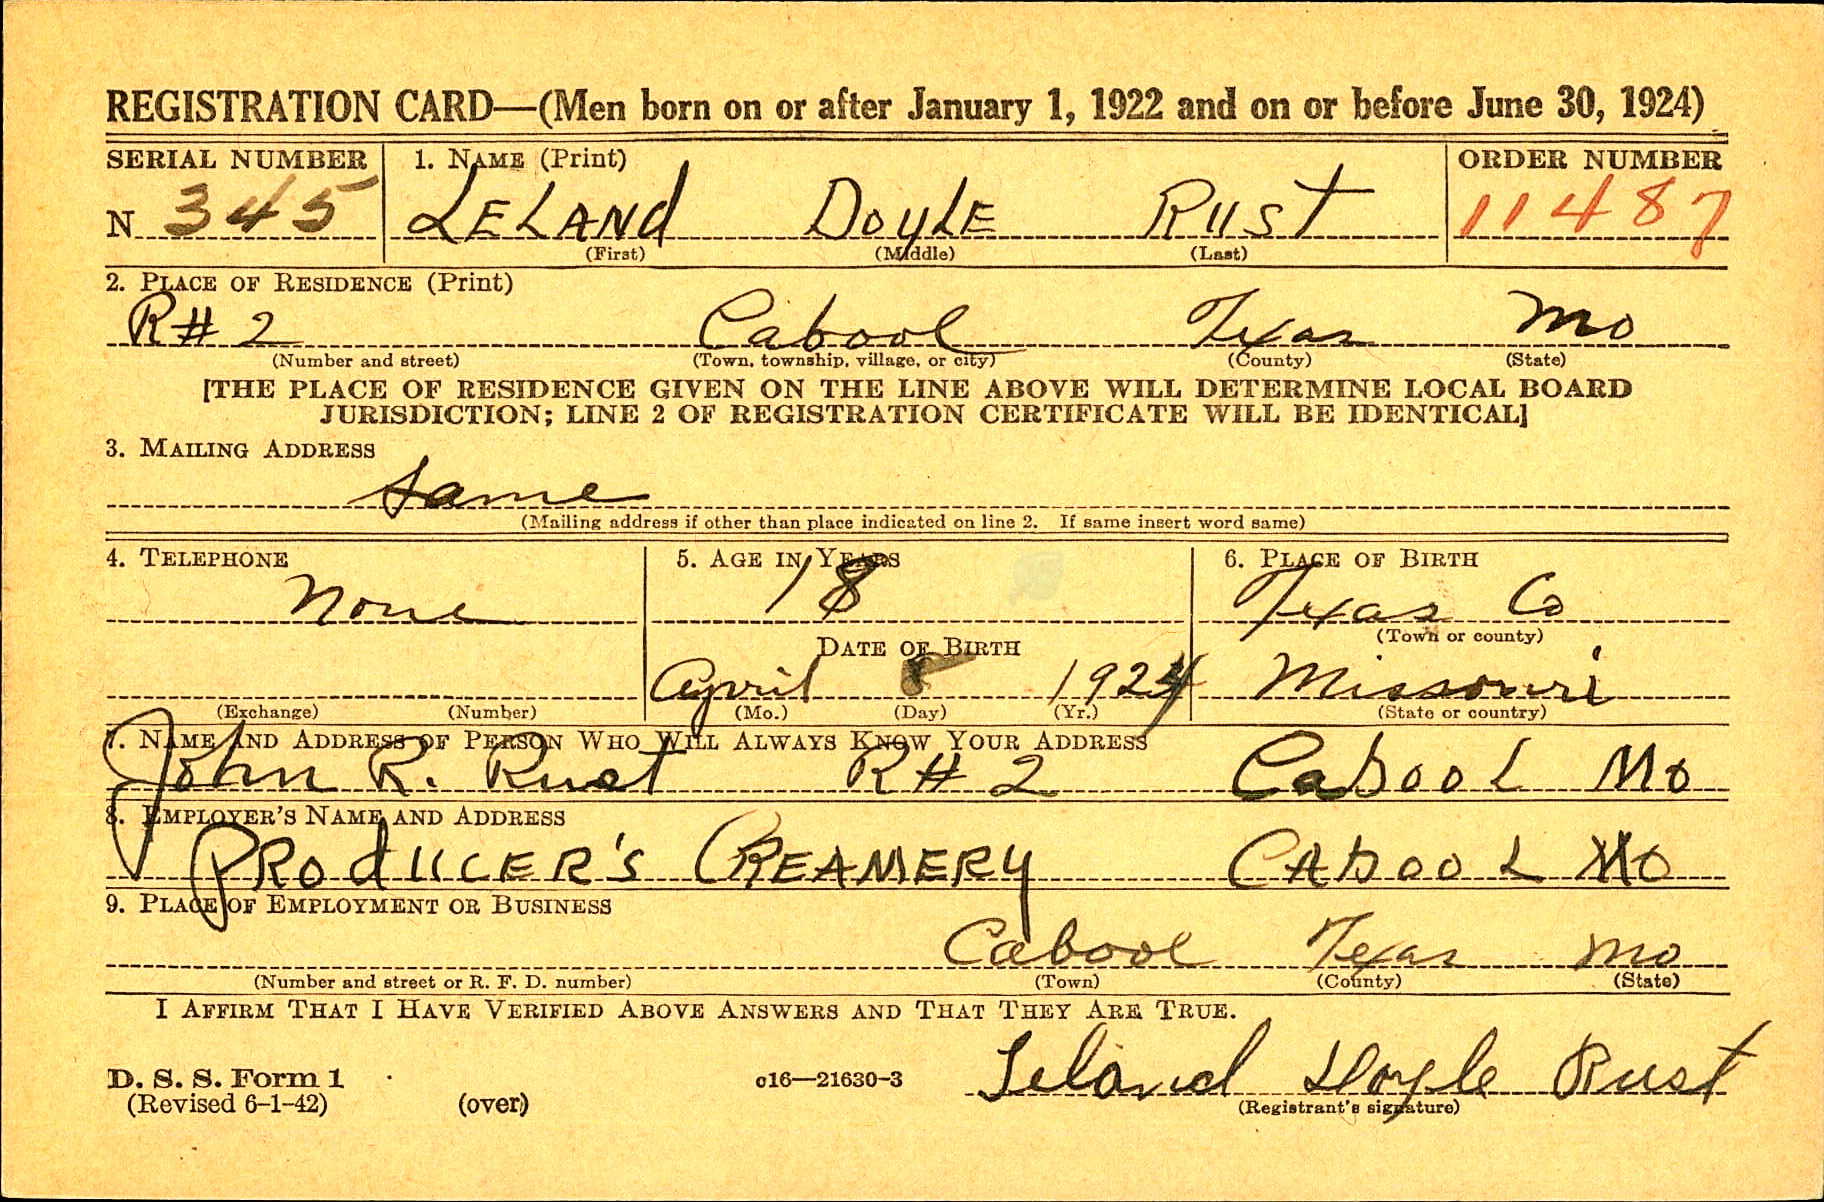 REGISTRATION CARD—(Men born on or after January 1, 1922 and on or before June 30, 1924)
SERIAL NUMBER 1. NAME (Print) ORDER NUMBER
N 345 LELANd DOyLE RUST 11487
(First) (Middle) (Last)
2. PLACE OF RESIDENCE (Print)
R# 2 Cabool Texas Mo
(Number and street) (Town, township, village, or city) (County) (State)
[THE PLACE OF RESIDENCE GIVEN ON THE LINE ABOVE WILL DETERMINE LOCAL BOARD
JURISDICTION; LINE 2 OF REGISTRATION CERTIFICATE WILL BE IDENTICAL]
3. MAILING ADDRESS
Same
(Mailing address if other than place indicated on line 2. If same insert word same)
4. TELEPHONE 5. AGE IN YEARS 6. PLACE OF BIRTH
None 18 Texas Co
DATE OF BIRTH (Town or county)
April 1924 Missouri
(Exchange) (Number) (Mo.) (Day) (Yr.) (State or country)
7. NAME AND ADDRESS OF PERSON WHO WILL ALWAYS KNOW YOUR ADDRESS
John R. Rust R# 2 CabooL Mo
8. EMPLOYER'S NAME AND ADDRESS
PRODUCER'S CREAMERY CABOOL MO
9. PLACE OF EMPLOYMENT OR BUSINESS
Cabool Texas Mo
(Number and street or R. F. D. number) (Town) (County) (State)
I AFFIRM THAT I HAVE VERIFIED ABOVE ANSWERS AND THAT THEY ARE TRUE.
D. S. S. Form 1 c16—21630-3 Leland Doyle Rust
(Revised 6-1-42) (over) (Registrant's signature)